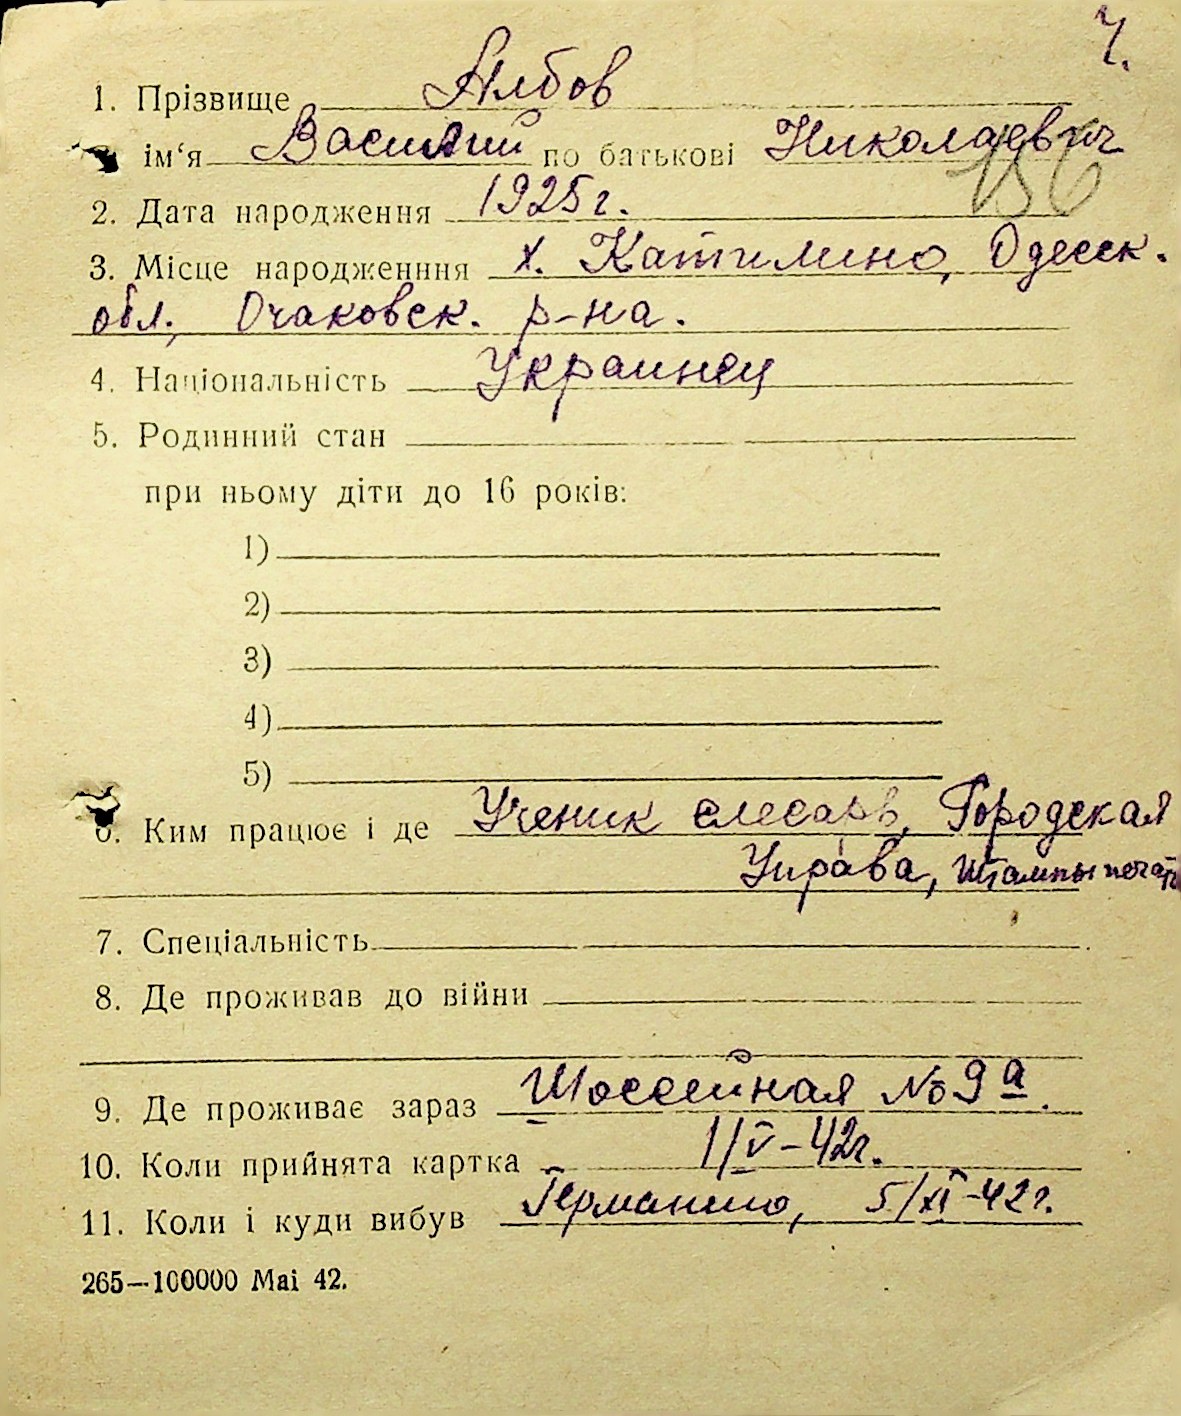 Ч.
1. Прізвище Албов
ім‘я Василий по батькові Николаевич
156
2. Дата народження 1925 г.
3. Місце народженння х. Катилино, Одесск.
обл., Очаковск. р-на.
4. Національність Украинец
5. Родинний стан
при ньому діти до 16 років:
1)
2)
3)
4)
5)
6. Ким працює і де Ученик слесаря, Городская
Управа, Штампы печать
7. Спеціальність
8. Де проживав до війни
9. Де проживає зараз Шоссейная № 9 а.
10. Коли прийнята картка 1/V-42г.
11. Коли і куди вибув Германию, 5/XI-42 г.
265—100000 Mai 42.